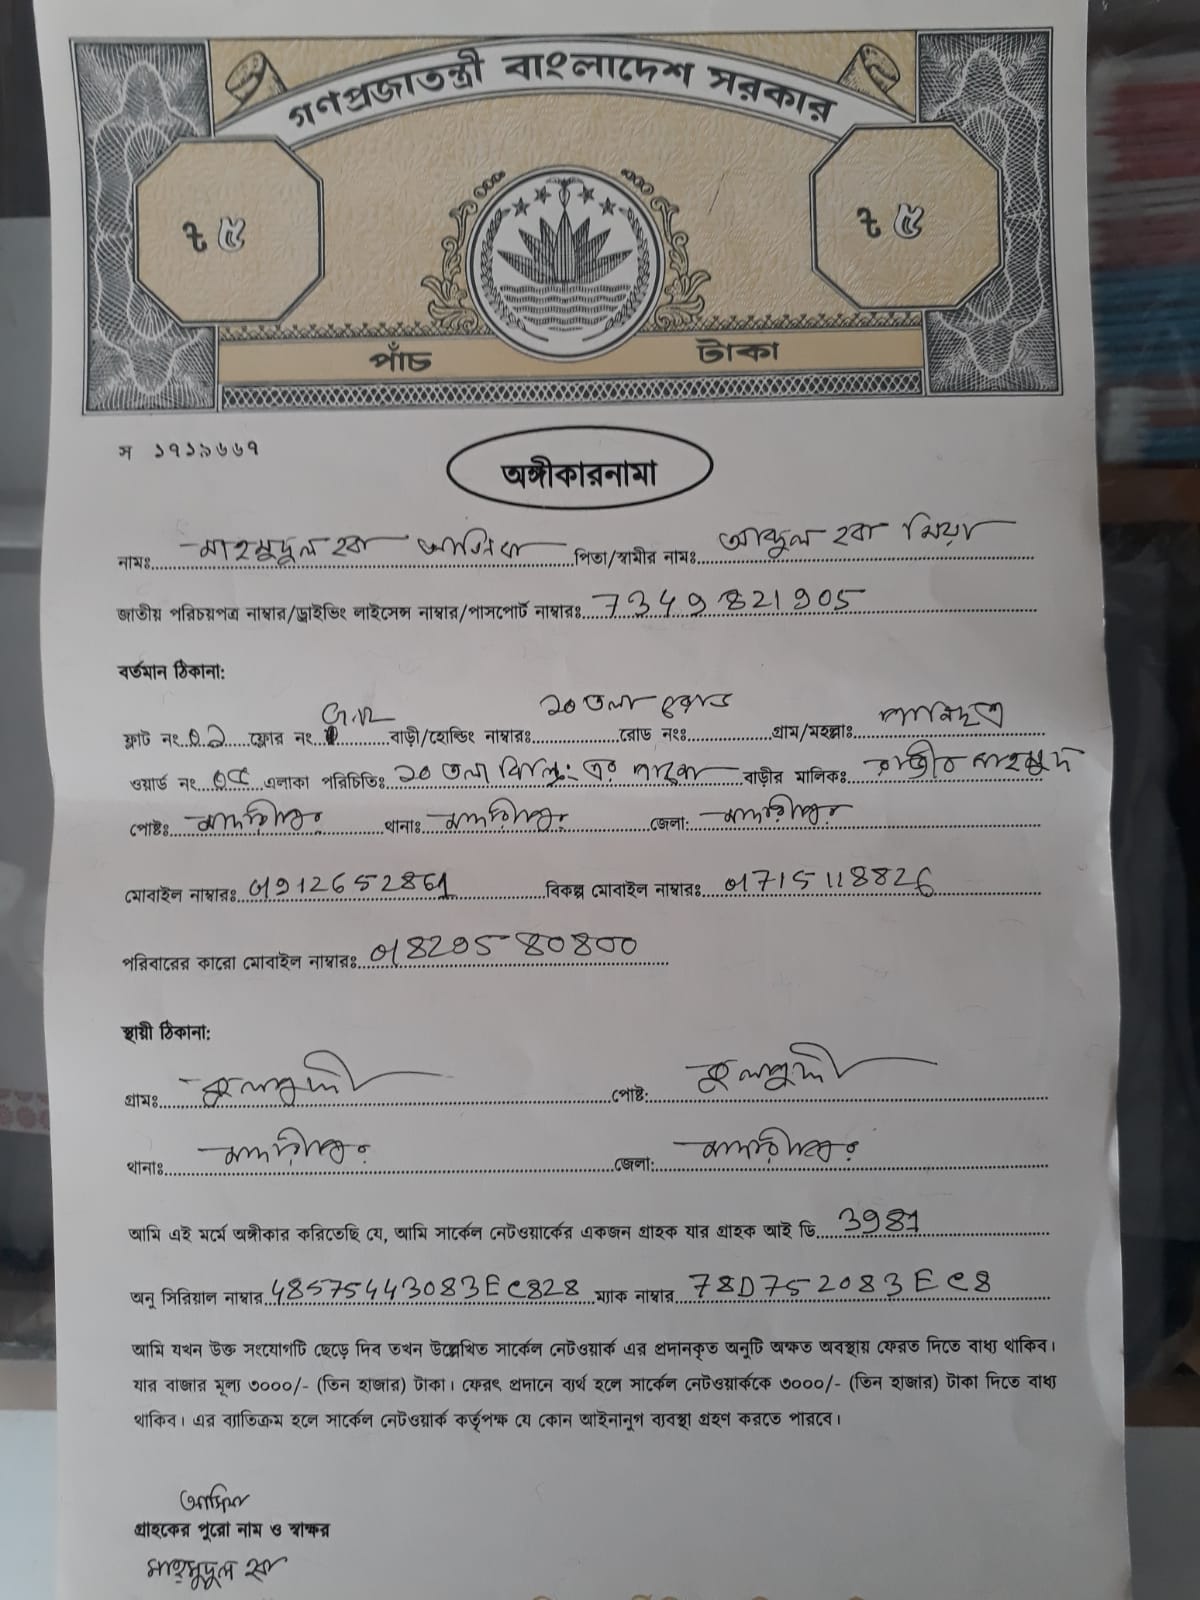 গণপ্রজাতন্ত্রী বাংলাদেশ সরকার
৳ ৫ ৳ ৫
পাঁচ টাকা
স ১৭১৯৬৬৭
অঙ্গীকারনামা
নামঃ মাহমুদুল হক আসিফ পিতা/স্বামীর নামঃ আব্দুল হক মিয়া
জাতীয় পরিচয়পত্র নাম্বার/ড্রাইভিং লাইসেন্স নাম্বার/পাসপোর্ট নাম্বারঃ 7349821905
বর্তমান ঠিকানা:
ফ্লাট নং ০১ ফ্লোর নং বাড়ী/হোল্ডিং নাম্বারঃ ১০ তলা রোড রোড নংঃ গ্রাম/মহল্লাঃ
ওয়ার্ড নং ০৫ এলাকা পরিচিতিঃ ১০ তলা বিল্ডিং এর বাড়ীর মালিকঃ রাজীব মাহমুদ
পোষ্টঃ মাদারীপুর থানাঃ মাদারীপুর জেলা: মাদারীপুর
মোবাইল নাম্বারঃ 01912652861 বিকল্প মোবাইল নাম্বারঃ 01715118826
পরিবারের কারো মোবাইল নাম্বারঃ 01829580800
স্থায়ী ঠিকানা:
গ্রামঃ কুলপদ্দী পোষ্ট: কুলপদ্দী
থানাঃ মাদারীপুর জেলা: মাদারীপুর
আমি এই মর্মে অঙ্গীকার করিতেছি যে, আমি সার্কেল নেটওয়ার্কের একজন গ্রাহক যার গ্রাহক আই ডি 3981
অনু সিরিয়াল নাম্বার 485754443083EC828 ম্যাক নাম্বার 78D752083EC8
আমি যখন উক্ত সংযোগটি ছেড়ে দিব তখন উল্লেখিত সার্কেল নেটওয়ার্ক এর প্রদানকৃত অনুটি অক্ষত অবস্থায় ফেরত দিতে বাধ্য থাকিব।
যার বাজার মূল্য ৩০০০/- (তিন হাজার) টাকা। ফেরৎ প্রদানে ব্যর্থ হলে সার্কেল নেটওয়ার্ককে ৩০০০/- (তিন হাজার) টাকা দিতে বাধ্য
থাকিব। এর ব্যাতিক্রম হলে সার্কেল নেটওয়ার্ক কর্তৃপক্ষ যে কোন আইনানুগ ব্যবস্থা গ্রহণ করতে পারবে।
আসিফ
গ্রাহকের পুরো নাম ও স্বাক্ষর
মাহমুদুল হক